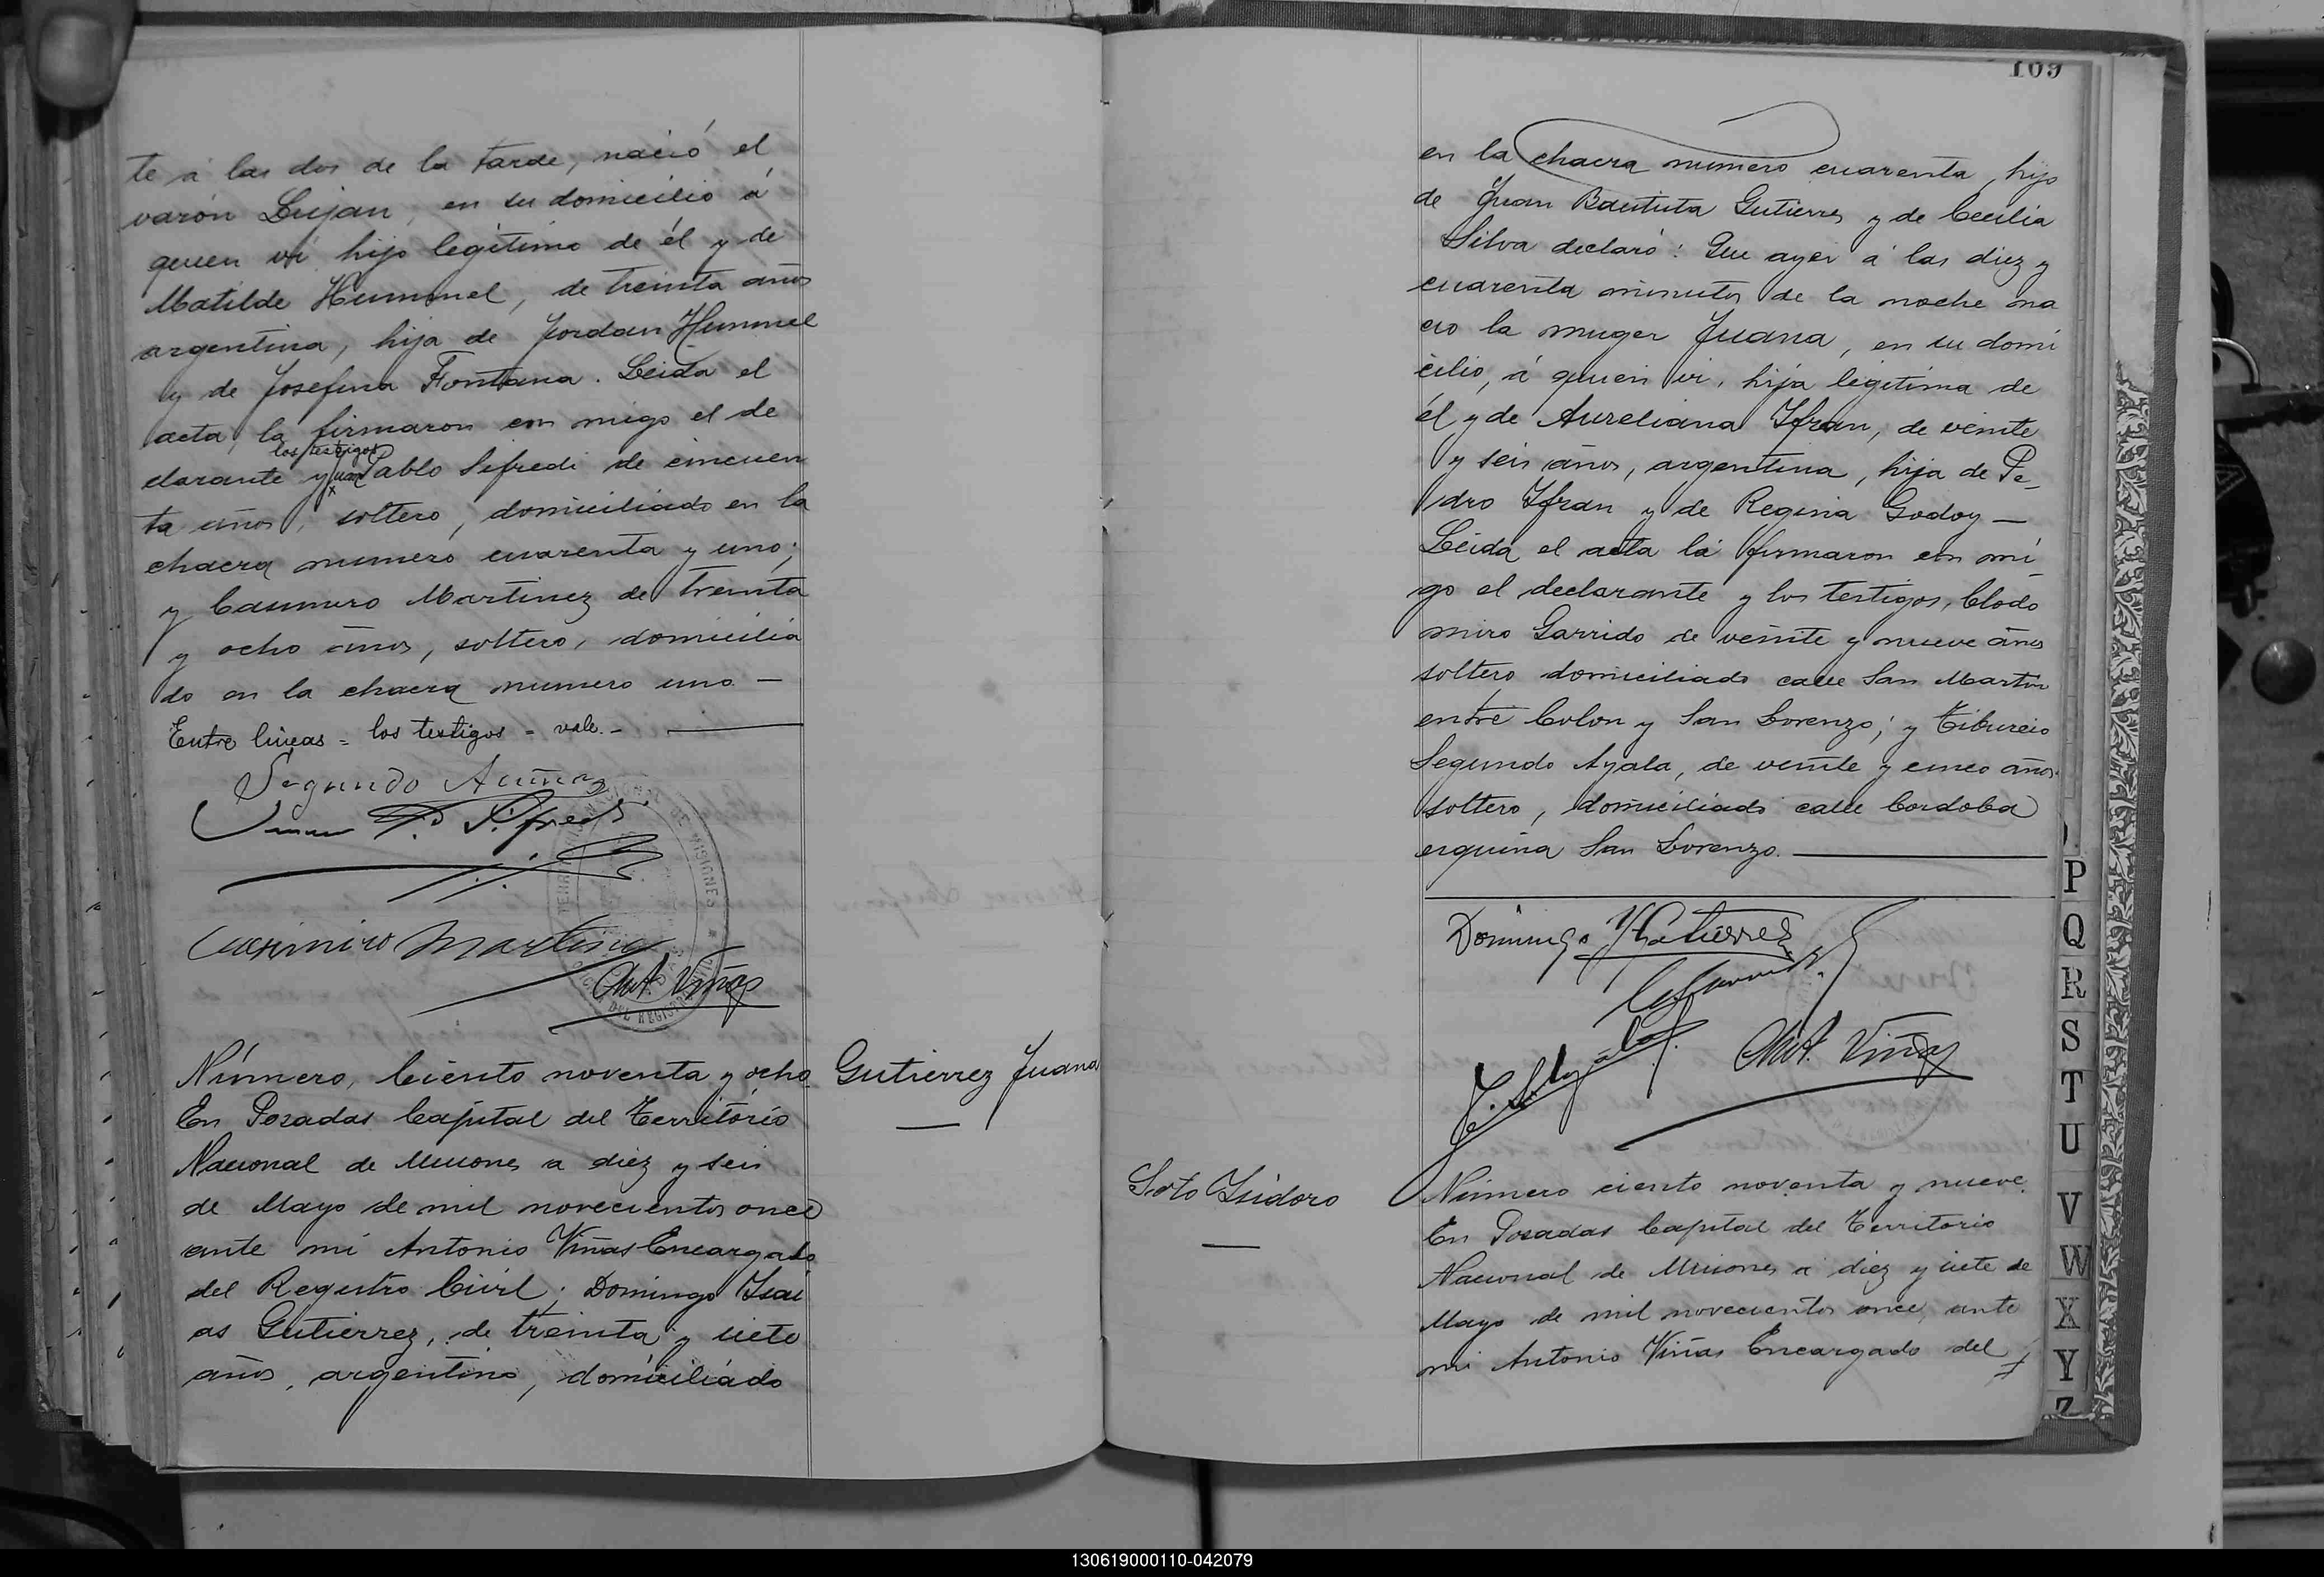 te á las dos de la tarde, nació el
varón Lujan, en su domicilio á
quien vi hijo legítimo de él y de
Matilde Hummel, de treinta años
argentina, hija de Jordan Hummel
y de Josefina Fontana. Leida el
acta, la firmaron con migo el de
los testigos
clarante y Juan Pablo Sifredi de cincuen
ta años, soltero, domiciliado en la
chacra numero cuarenta y uno;
y Casimiro Martinez de treinta
y ocho años, soltero, domicilia
do en la chacra numero uno —
Entre lineas = los testigos = vale. —
Segundo Acuña
Juan P. Sifredi
Casimiro Martinez
Ant Viñas
Número, Ciento noventa y ocho
Gutierrez Juana
En Posadas Capital del Território
Nacional de Misiones a diez y seis
de Mayo de mil novecientos once
ante mi Antonio Viñas Encargado
del Registro Civil; Domingo Isai
as Gutierrez, de treinta y siete
años, argentino, domiciliado
109
en la chacra numero cuarenta, hijo
de Juan Bautista Gutierres y de Cecilia
Silva declaró: Que ayer á las diez y
cuarenta minutos de la noche na
cio la muger Juana, en su domi
cilio, á quien vi, hija legitima de
él y de Aureliana Ifran, de veinte
y seis años, argentina, hija de Pe_
dro Ifran y de Regina Godoy —
Leida el acta la firmaron con mi_
go el declarante y los testigos, Clodo
miro Garrido de veinte y nueve años
soltero domiciliado calle San Martin
entre Colon y San Lorenzo; y Tiburcio
Segundo Ayala, de veinte y cinco años
soltero, domiciliado calle Cordoba
esquina San Lorenzo.
Domingo Y Gutierrez
C Garrido
T. S. Ayala
Ant. Viñas
Soto Isidoro
Número ciento noventa y nueve
En Posadas Capital del Territorio
Nacional de Misiones a diez y siete de
Mayo de mil novecientos once, ante
mi Antonio Viñas Encargado del
P
Q
R
S
T
U
V
W
X
Y
Z
130619000110-042079